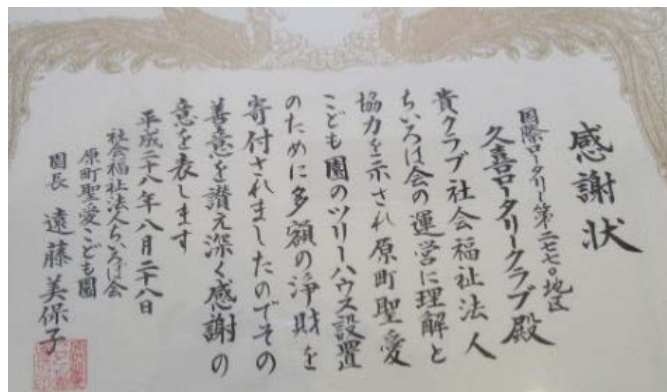 感謝状
国際ロータリー第二七七〇地区
久喜ロータリークラブ殿
貴クラブ社会福祉法人
ちいろば会の運営に理解と
協力を示され原町聖愛
こども園のツリーハウス設置
のために多額の浄財を
寄付されましたのでその
善意を讃え深く感謝の
意を表します
平成二十八年八月二十八日
社会福祉法人ちいろば会
原町聖愛こども園
園長 遠藤美保子